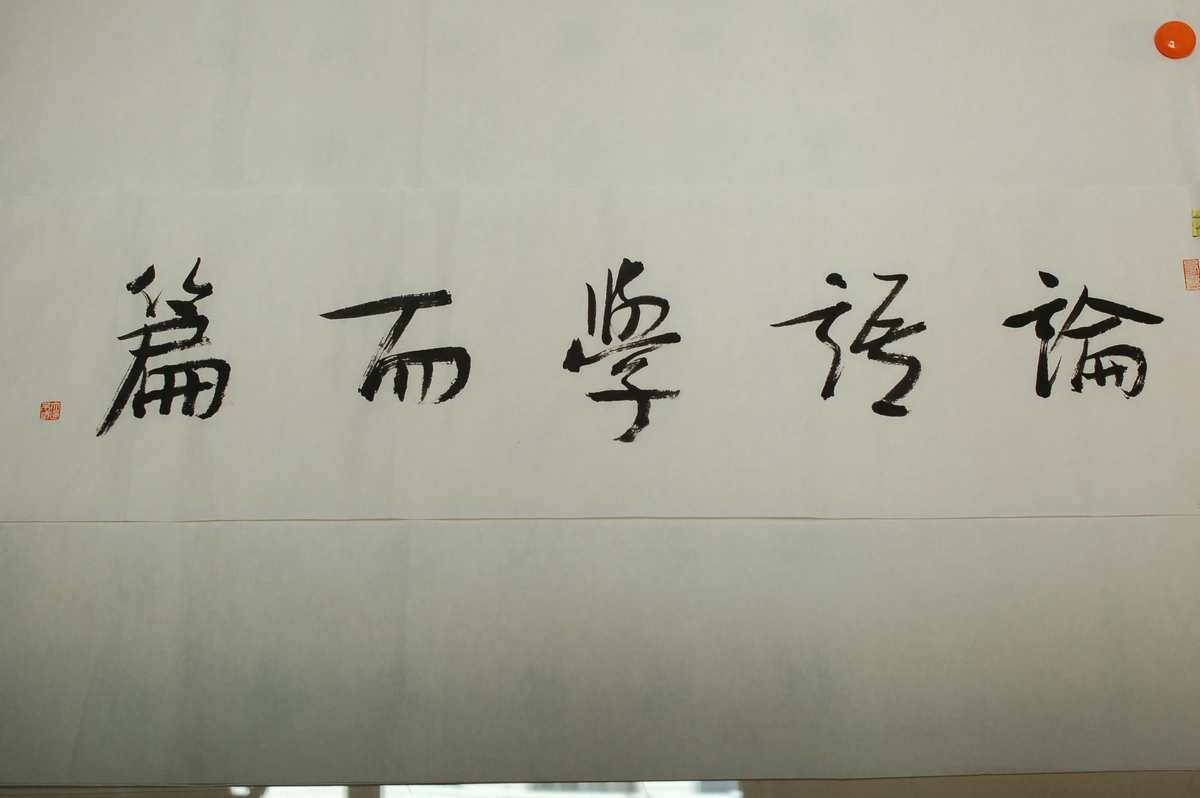 論語學而篇